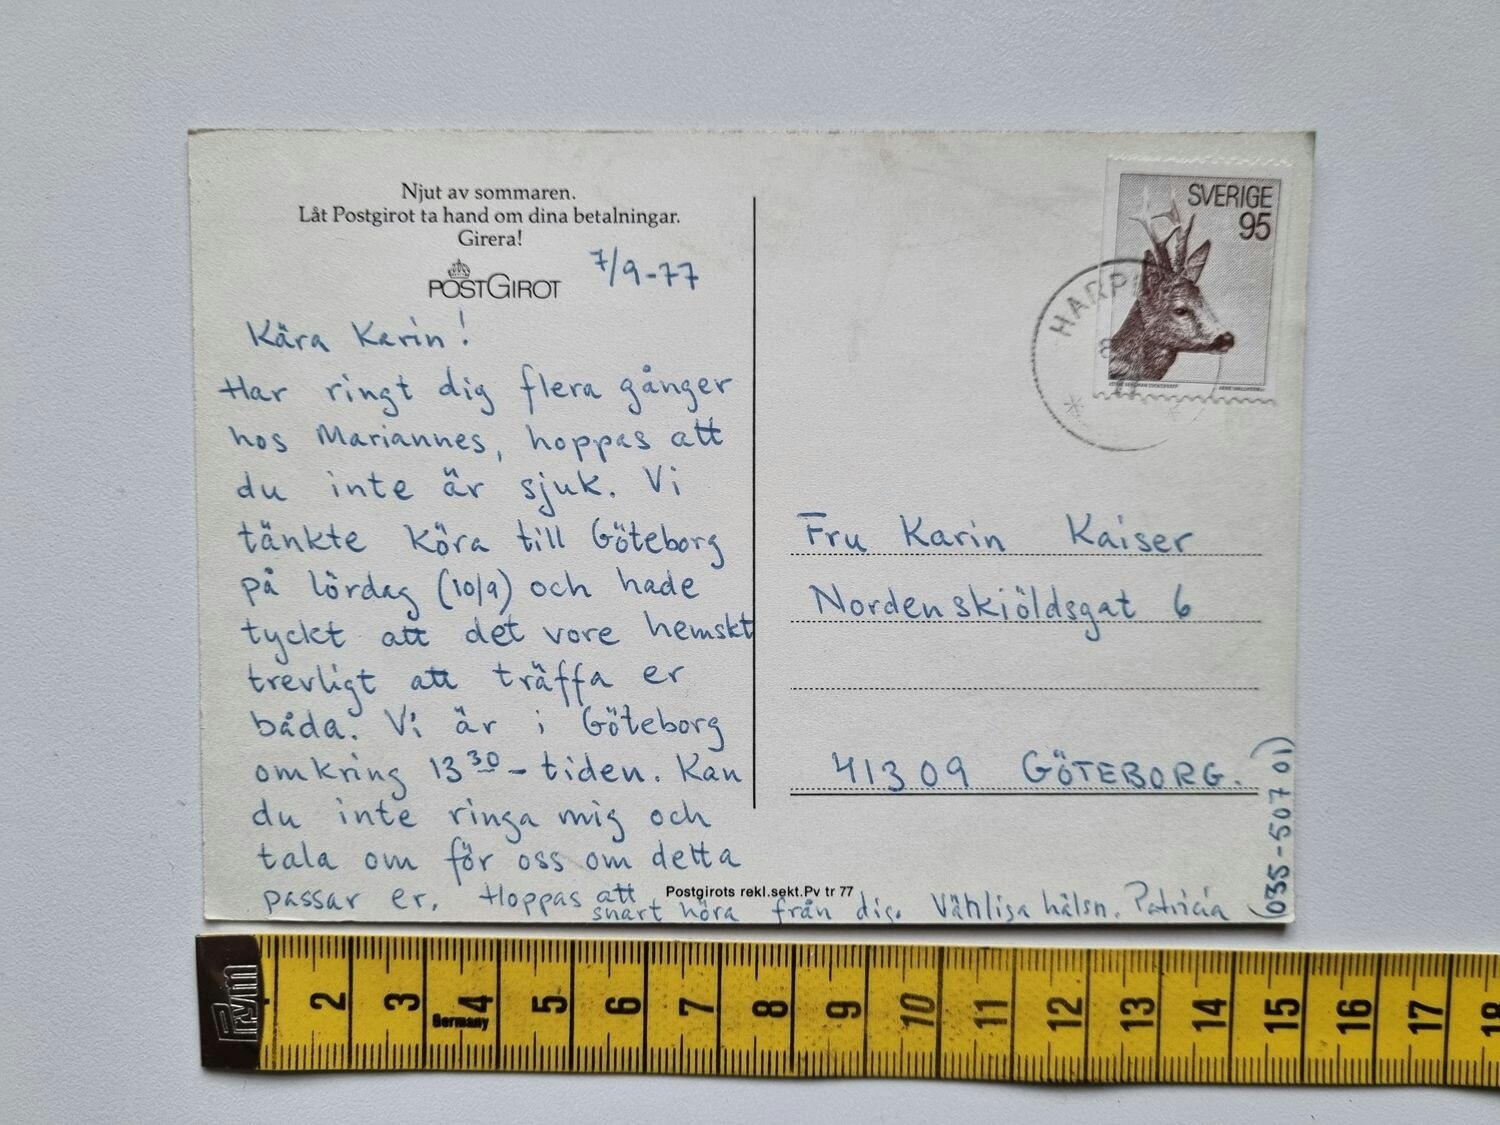 Njut av sommaren.
Låt Postgirot ta hand om dina betalningar.
Girera!
POSTGIROT
7/9-77
Kära Karin!
Har ringt dig flera gånger
hos Mariannes, hoppas att
du inte är sjuk. Vi
tänkte köra till Göteborg
på lördag (10/9) och hade
tyckt att det vore hemskt
trevligt att träffa er
båda. Vi är i Göteborg
omkring 13 30 - tiden. Kan
du inte ringa mig och
tala om för oss om detta
passar er. Hoppas att
snart höra från dig. Vänliga hälsn. Patricia
(035-507 01)
Postgirots rekl.sekt.Pv tr 77
SVERIGE
95
Fru Karin Kaiser
Nordenskiöldsgat 6
41309 GÖTEBORG.
Prym
2 3 4 5 6 7 8 9 10 11 12 13 14 15 16 17 18
Germany